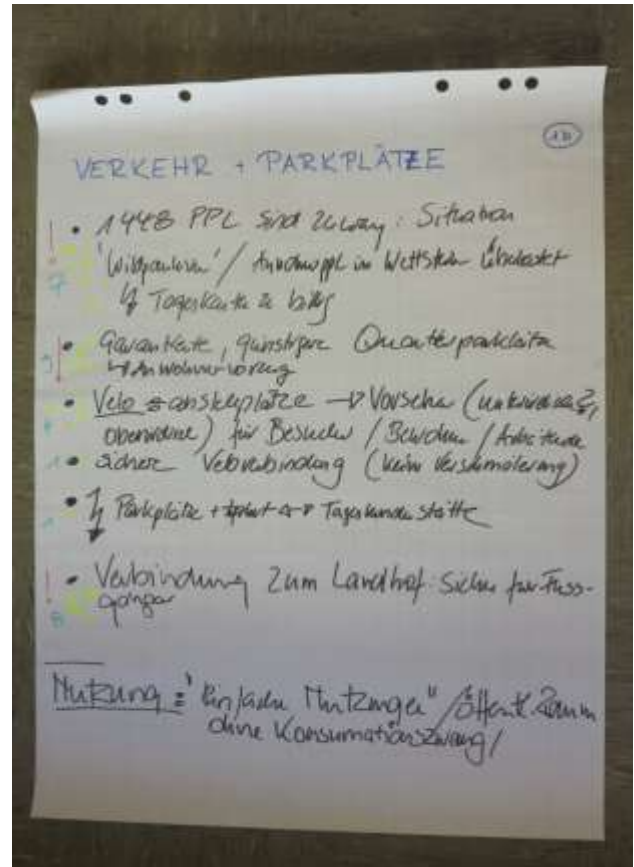 1b
VERKEHR + PARKPLÄTZE
! • 1448 PPL sind : Situation
7 'Wildparkieren' / in Wettstein überlastet
↯ Tageskarte zu billig
• Garantierte, günstigere Quartierparkplätze
↳ Anwohner
• Velo abstellplätze → (unterirdisch?,
oberirdisch) für Besucher / Bewohner /
1 • sichere Veloverbindung (keine Verschmälerung)
• ↯ Parkplätze + ↔ Tageskunden
! • Verbindung zum Landhof: Sicher für Fuss-
8 gänger
Nutzung = "Einfache Nutzungen" / öffentl. Raum
ohne Konsumationszwang /